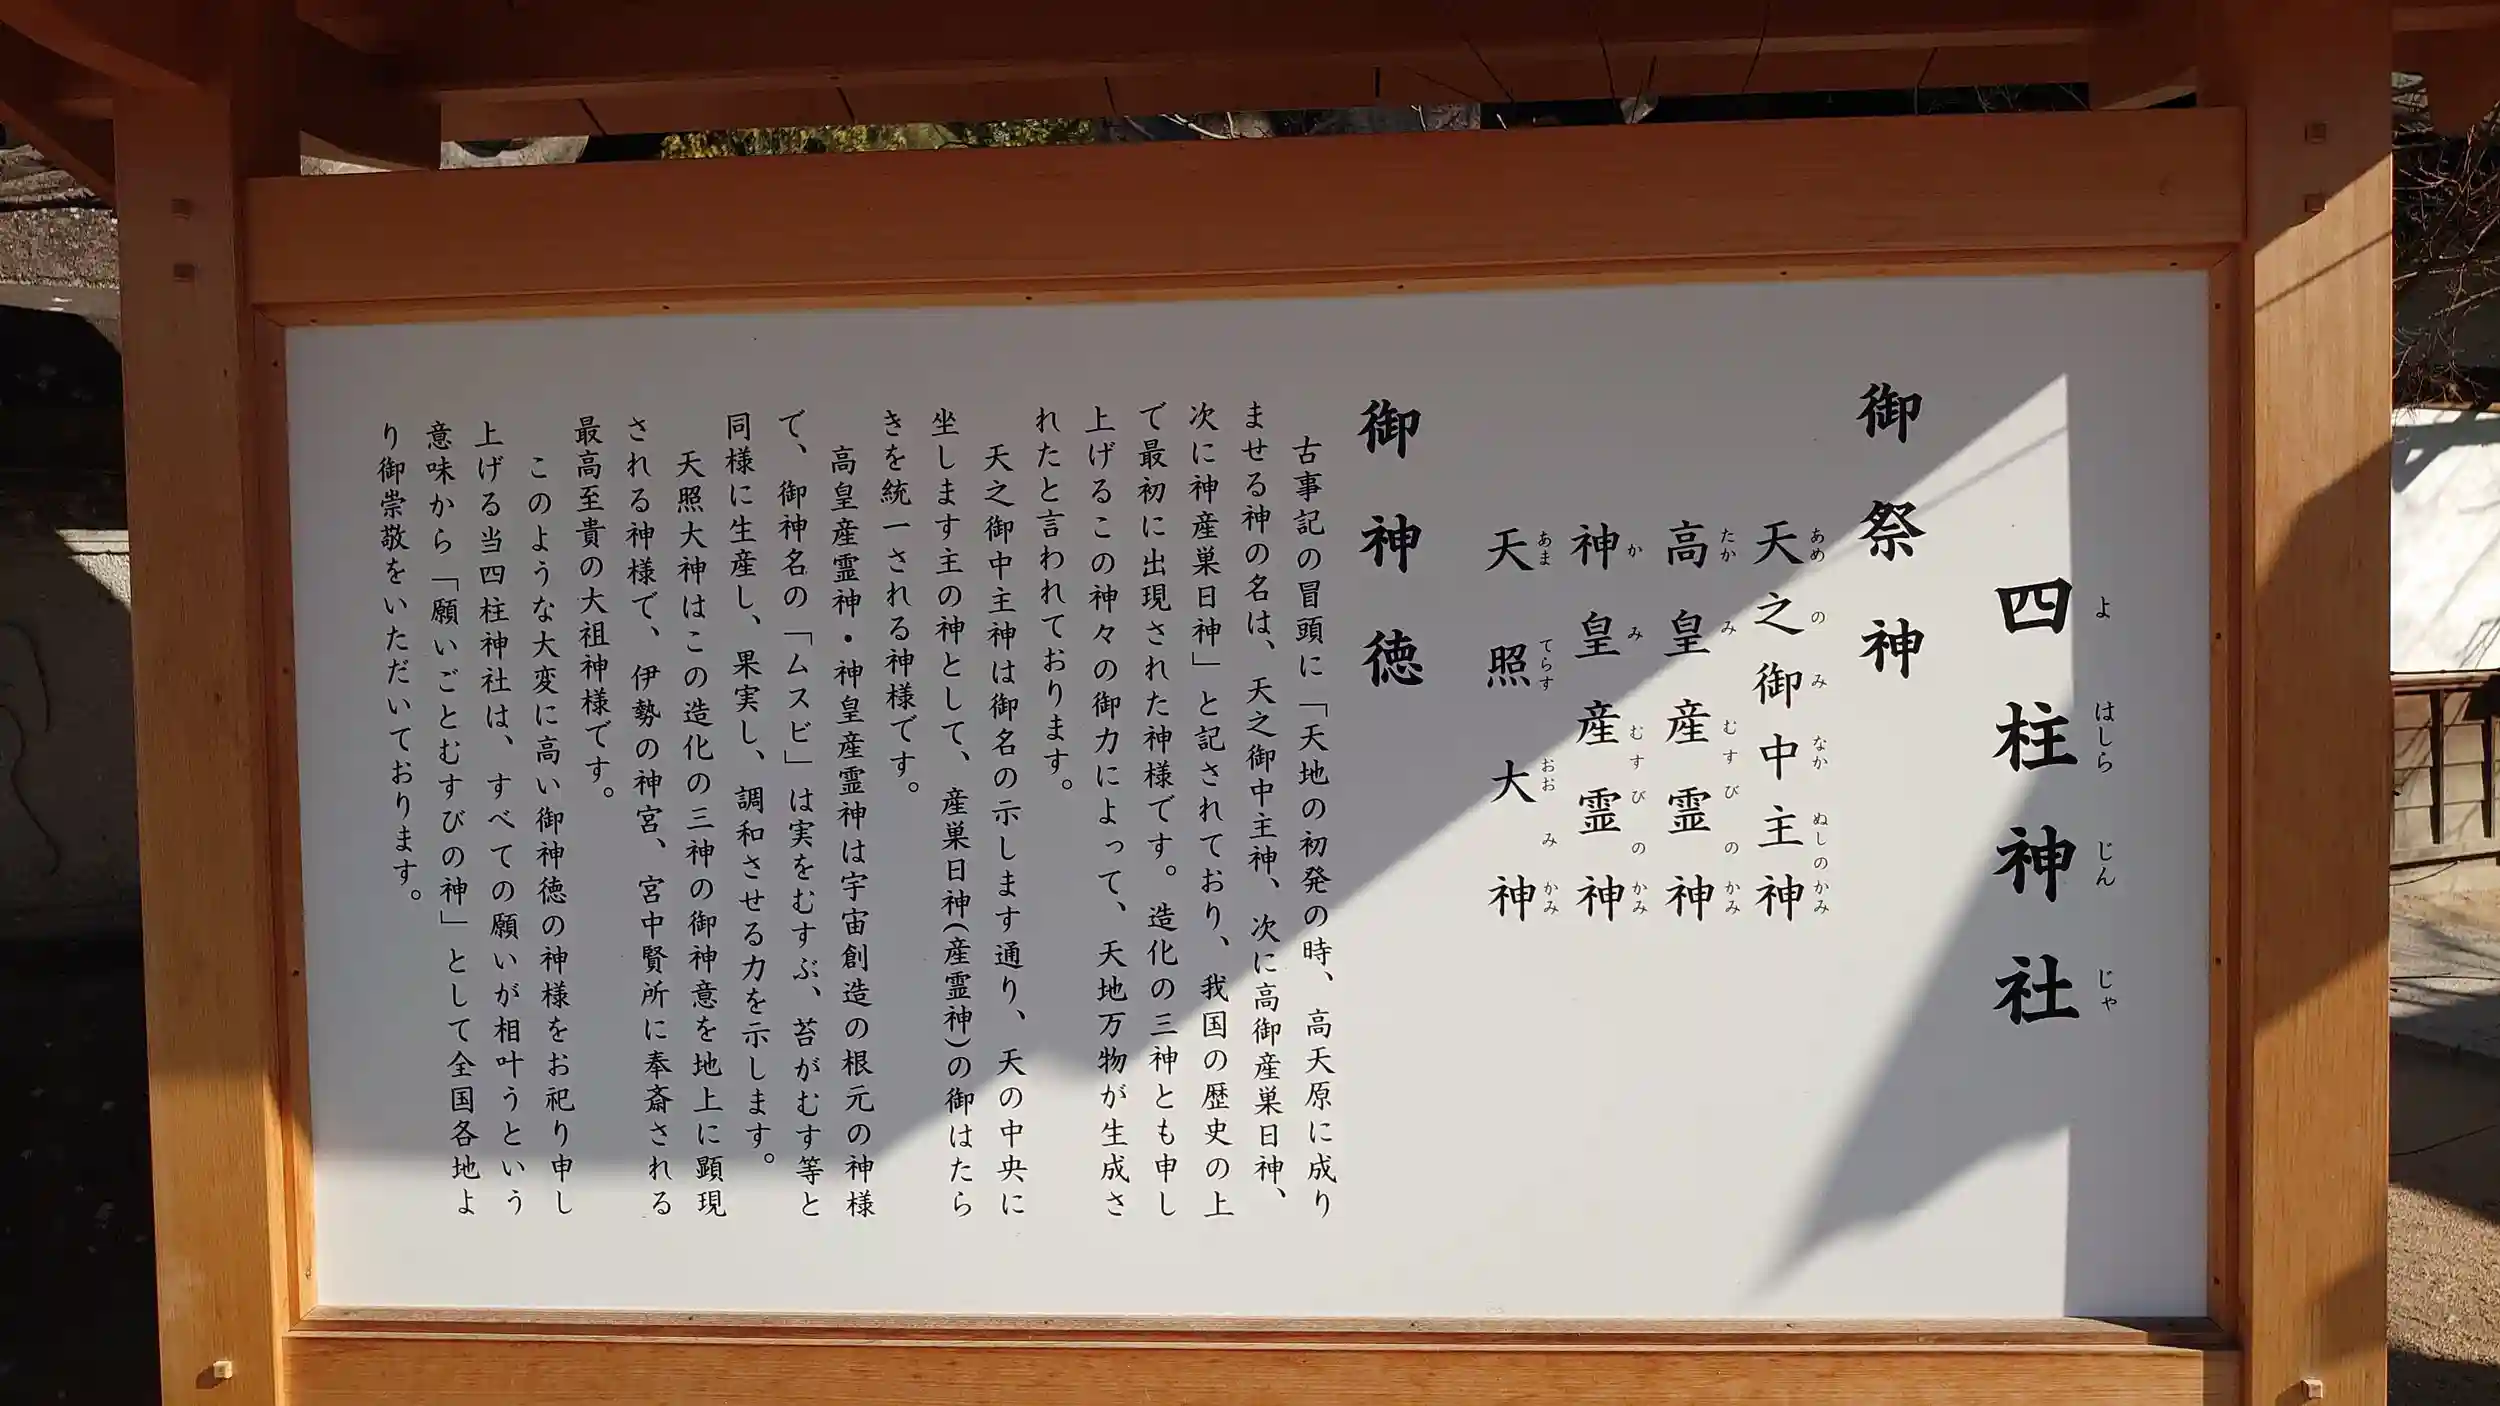 四柱神社
よ はしら じん じゃ
御祭神
天之御中主神
あめ の み なか ぬしのかみ
高皇産霊神
たか み むすび の かみ
神皇産霊神
か み むすび の かみ
天照大神
あま てらす おお み かみ
御神徳
古事記の冒頭に「天地の初発の時、高天原に成り
ませる神の名は、天之御中主神、次に高御産巣日神、
次に神産巣日神」と記されており、我国の歴史の上
で最初に出現された神様です。造化の三神とも申し
上げるこの神々の御力によって、天地万物が生成さ
れたと言われております。
天之御中主神は御名の示します通り、天の中央に
坐します主の神として、産巣日神(産霊神)の御はたら
きを統一される神様です。
高皇産霊神・神皇産霊神は宇宙創造の根元の神様
で、御神名の「ムスビ」は実をむすぶ、苔がむす等と
同様に生産し、果実し、調和させる力を示します。
天照大神はこの造化の三神の御神意を地上に顕現
される神様で、伊勢の神宮、宮中賢所に奉斎される
最高至貴の大祖神様です。
このような大変に高い御神徳の神様をお祀り申し
上げる当四柱神社は、すべての願いが相叶うという
意味から「願いごとむすびの神」として全国各地よ
り御崇敬をいただいております。